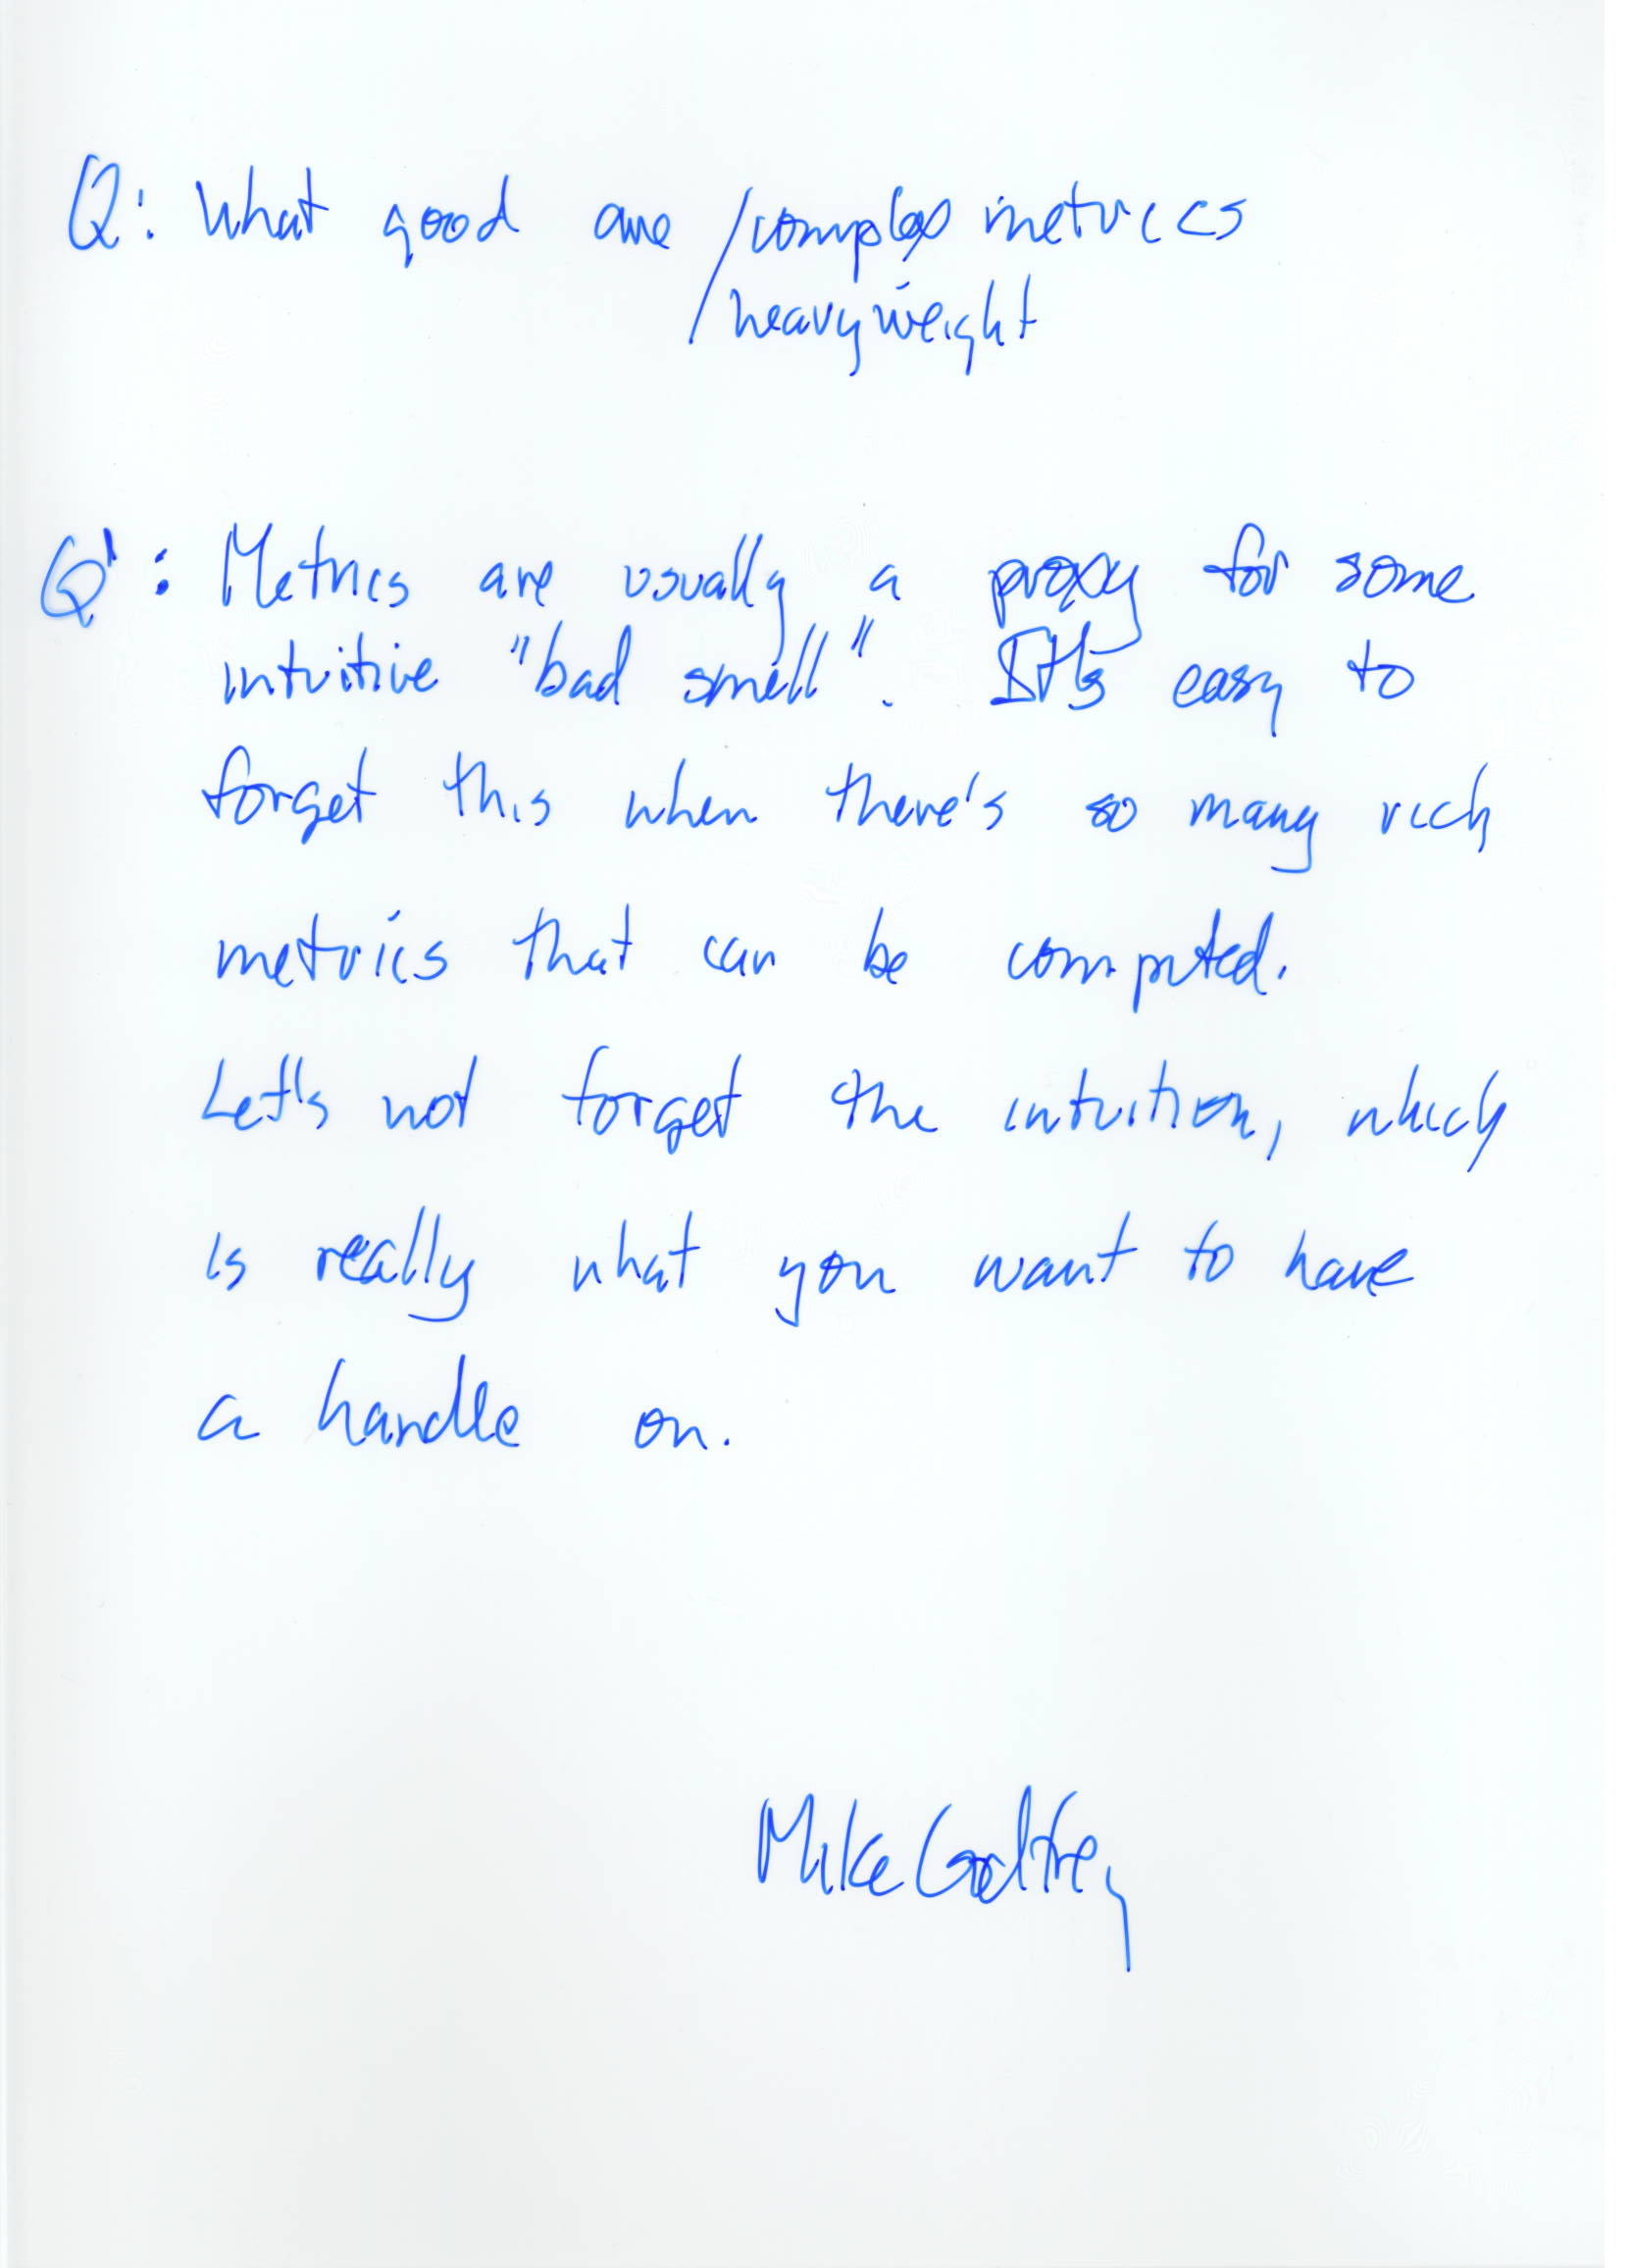 Q: What good are /complex metrics
/heavyweight
Q': Metrics are usually a proxy for some
intuitive "bad smell". It's easy to
forget this when there's so many rich
metrics that can be computed.
Let's not forget the intuition, which
is really what you want to have
a handle on.
Mike Godfrey